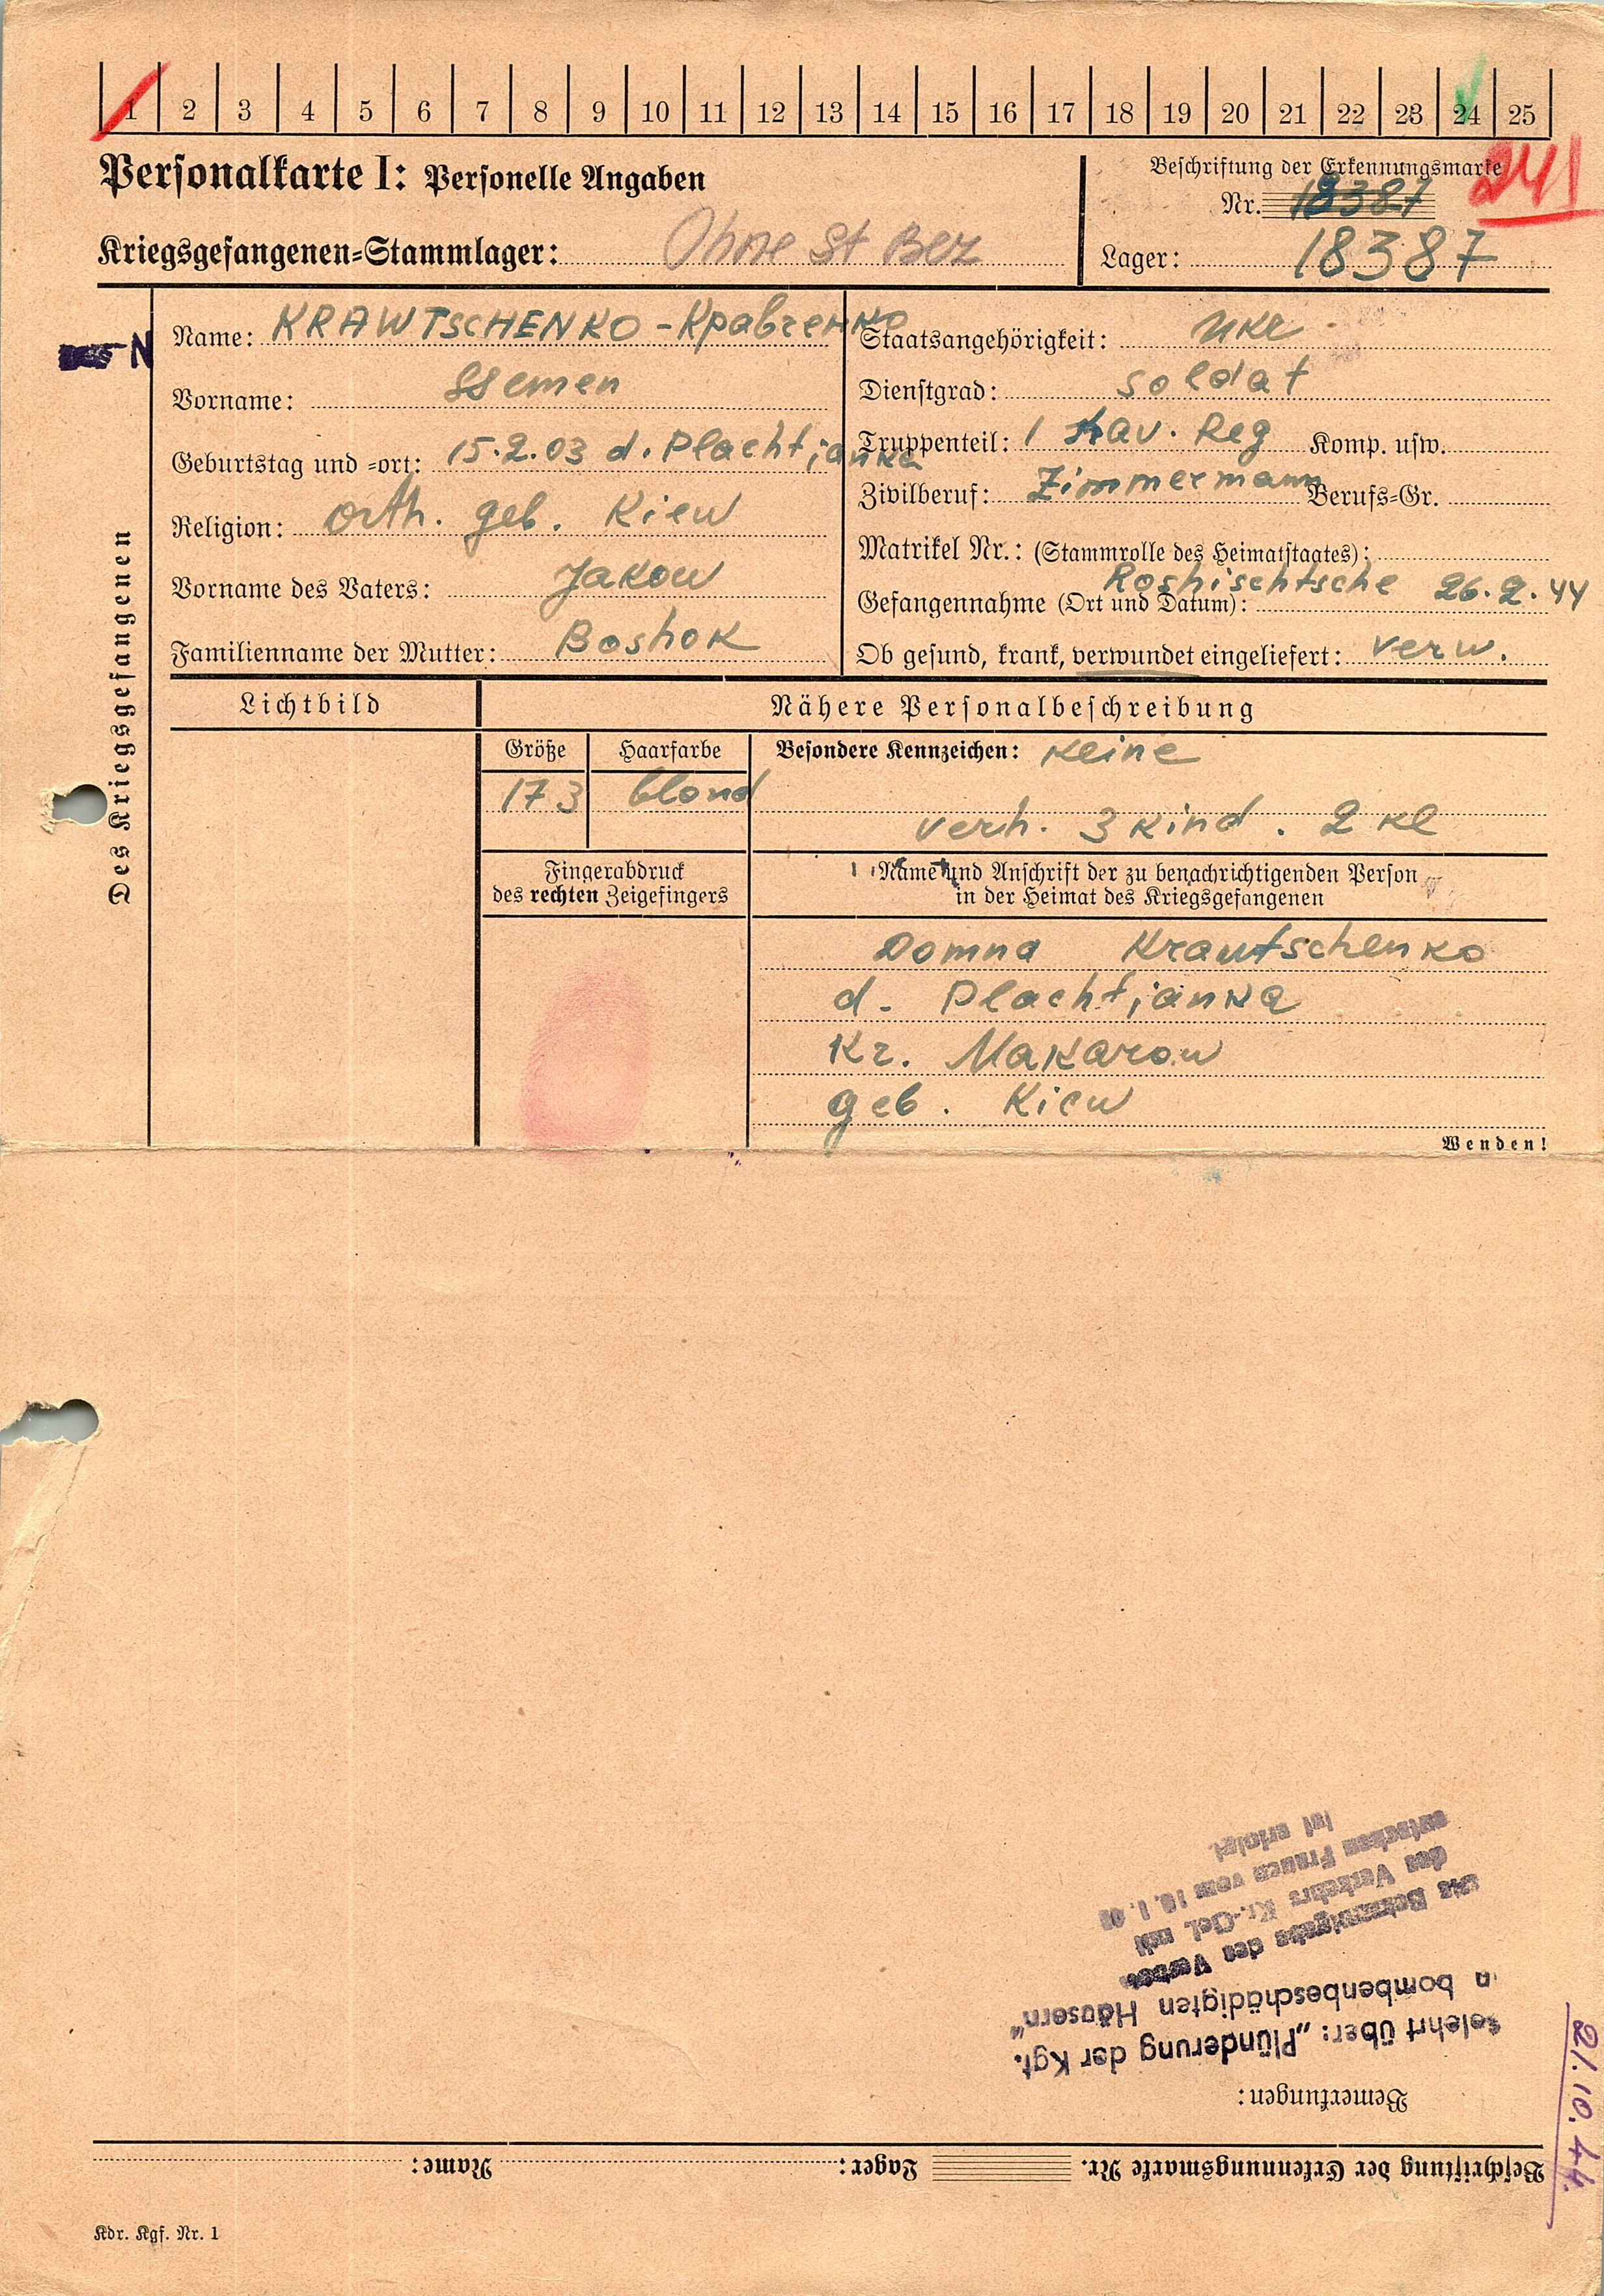 1 2 3 4 5 6 7 8 9 10 11 12 13 14 15 16 17 18 19 20 21 22 23 24 25
Personalkarte I: Personelle Angaben
Beschriftung der Erkennungsmarke
241
Nr. 18387
Kriegsgefangenen-Stammlager: Ohne St Bez
Lager: 18387
Des Kriegsgefangenen
N
Name: KRAWTSCHENKO - Кравченко
Vorname: Ssemen
Geburtstag und -ort: 15.2.03 d. Plachtjanka
Religion: orth. geb. Kiew
Vorname des Vaters: Jakow
Familienname der Mutter: Boshok
Staatsangehörigkeit: Ukr
Dienstgrad: soldat
Truppenteil: 1 Kav. Reg Komp. usw.
Zivilberuf: Zimmermann Berufs-Gr.
Matrikel Nr.: (Stammrolle des Heimatstaates):
Gefangennahme (Ort und Datum): Roshischtsche 26.2.44
Ob gesund, krank, verwundet eingeliefert: verw.
Lichtbild
Nähere Personalbeschreibung
Größe Haarfarbe Besondere Kennzeichen: keine
173 blond
verh. 3 Kind. 2 Kl
Fingerabdruck
des rechten Zeigefingers
Name und Anschrift der zu benachrichtigenden Person
in der Heimat des Kriegsgefangenen
Domna Krawtschenko
d. Plachtjanka
Kr. Makarow
geb. Kiew
Wenden!
Beschriftung der Erkennungsmarke Nr. Lager: Name:
Bemerkungen:
Belehrt über: „Plünderung der Kgf.
in bombenbeschädigten Häusern"
des Verbots
des Verkehrs Kr.-Gef. mit
deutschen Frauen vom 16.1.
ist erfolgt.
21.10.44.
Kdr. Kgf. Nr. 1